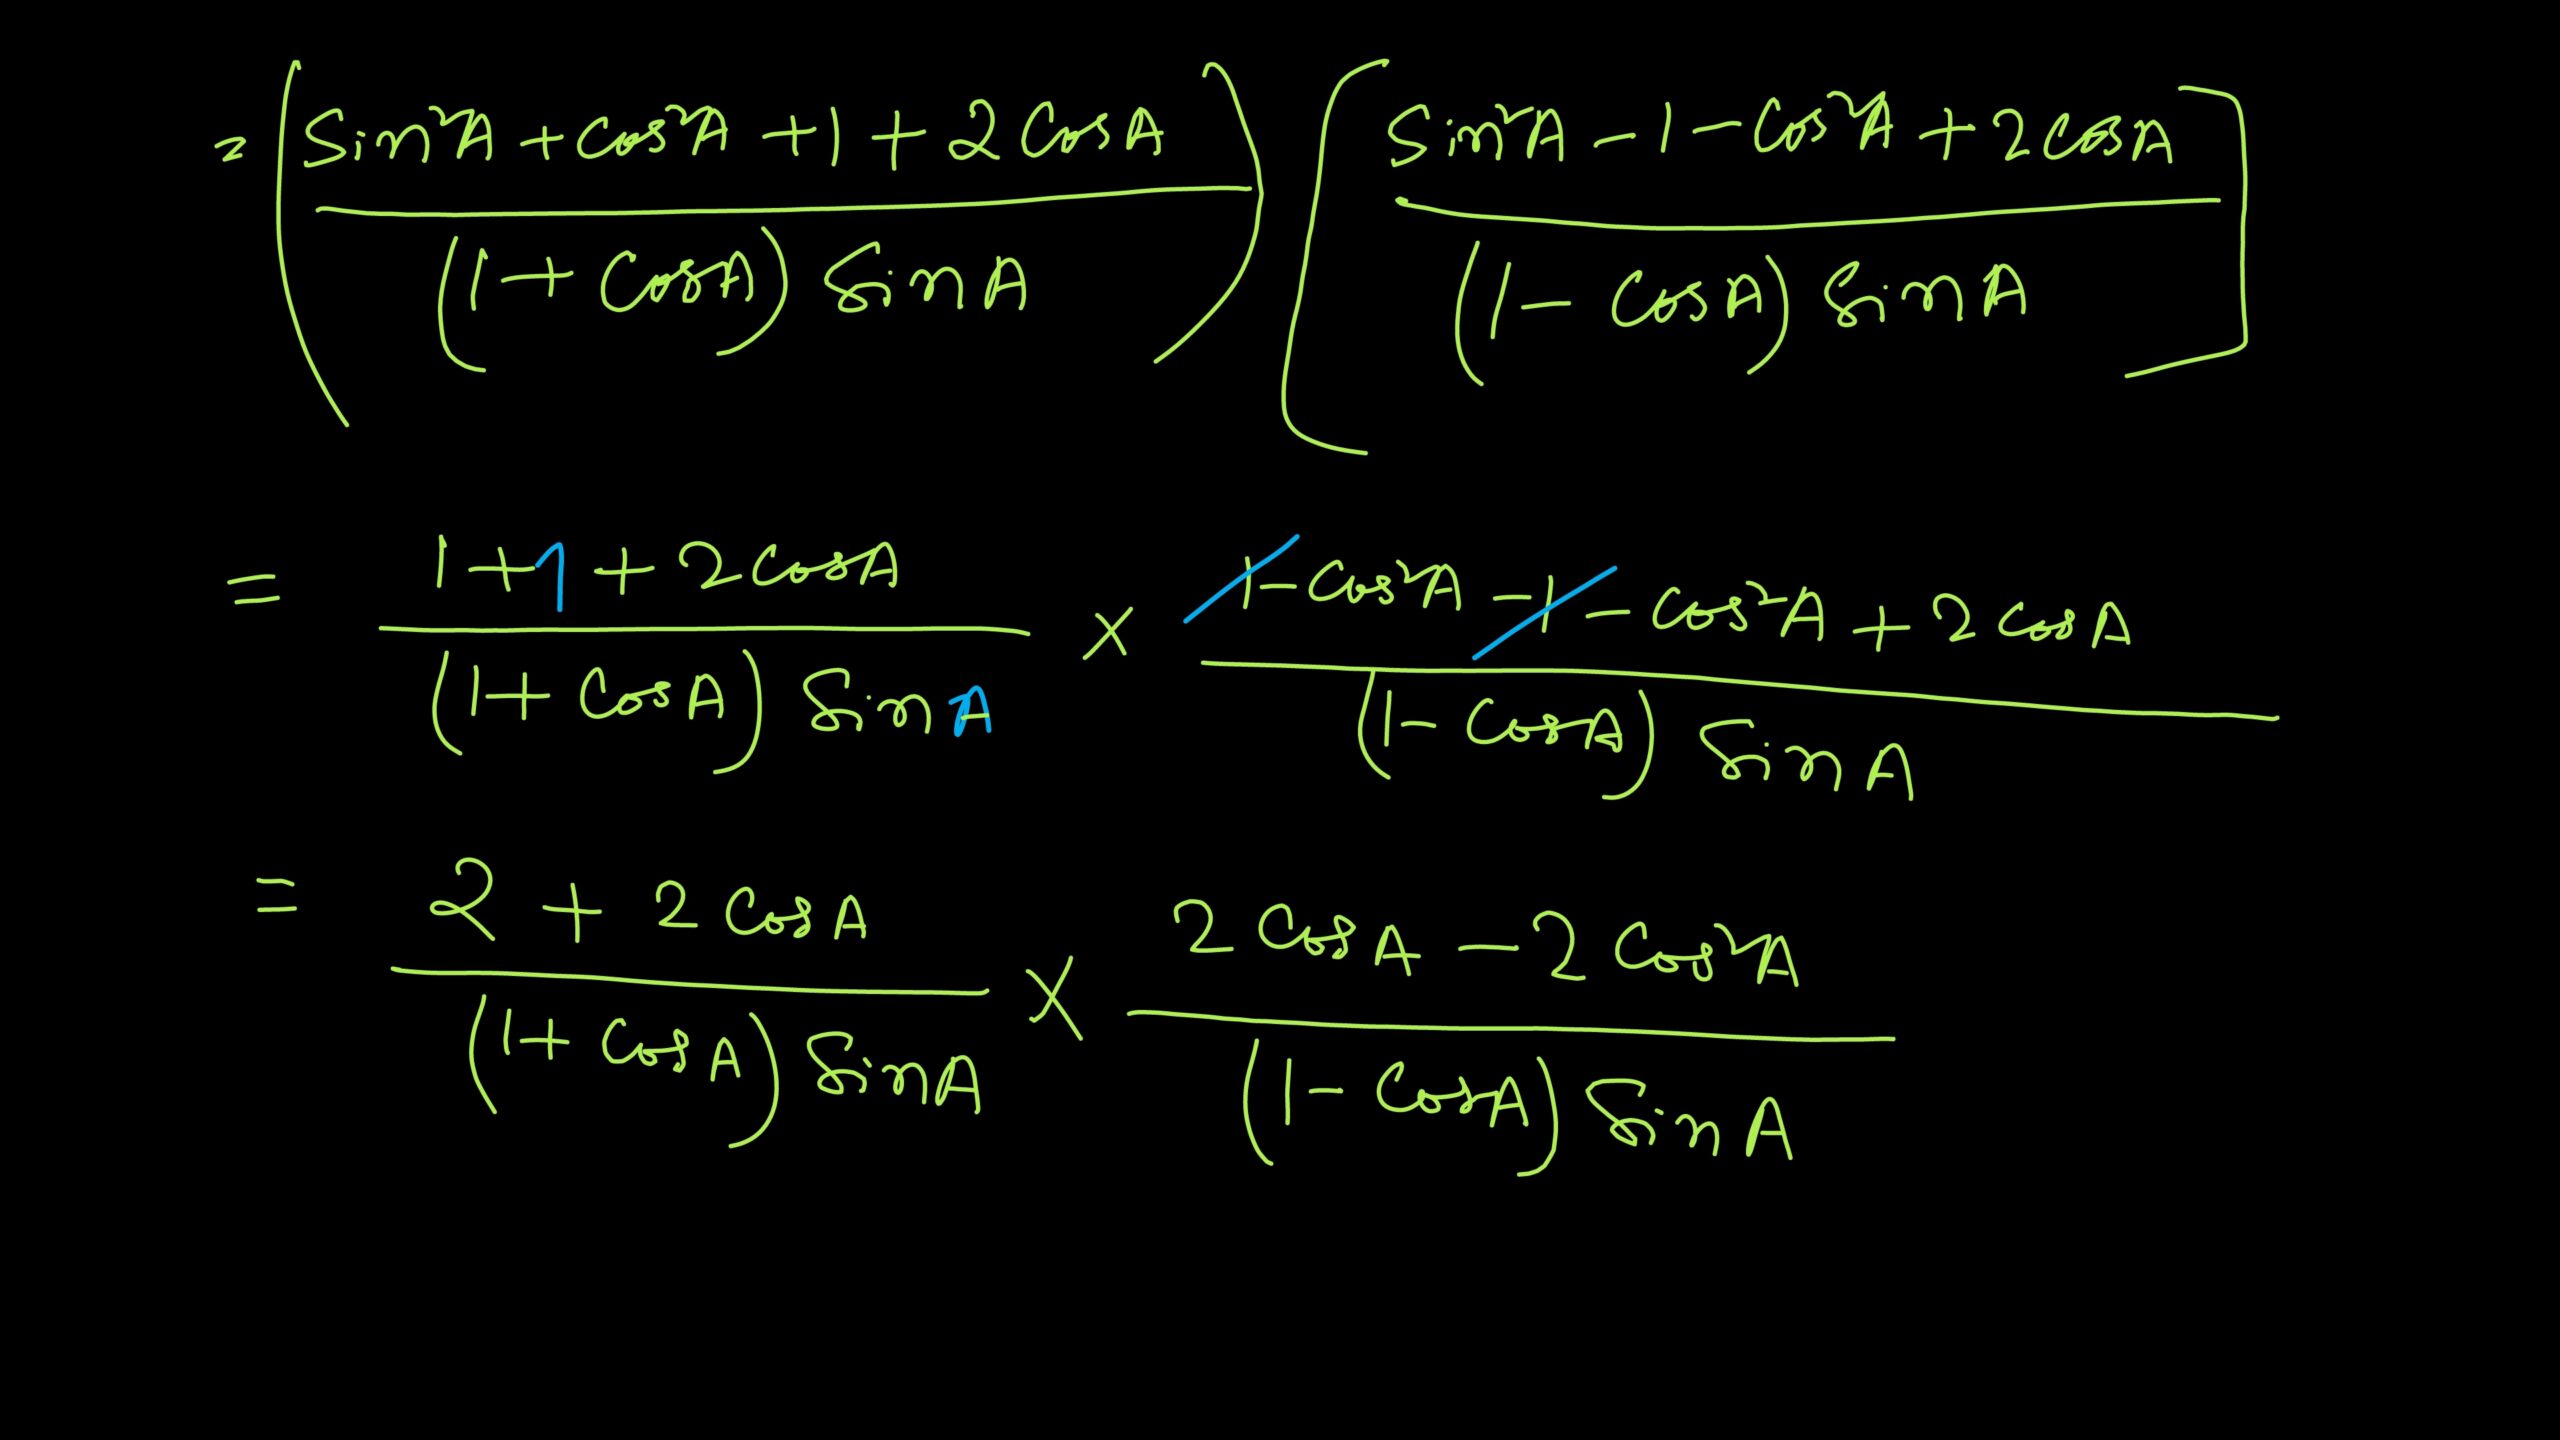 = (Sin²A + Cos²A + 1 + 2 CosA / (1 + CosA) SinA) [Sin²A - 1 - Cos²A + 2 CosA / (1 - CosA) SinA]
= 1 + 1 + 2 CosA / (1 + CosA) SinA × 1 - Cos²A - 1 - Cos²A + 2 CosA / (1 - CosA) SinA
= 2 + 2 CosA / (1 + CosA) SinA × 2 CosA - 2 Cos²A / (1 - CosA) SinA